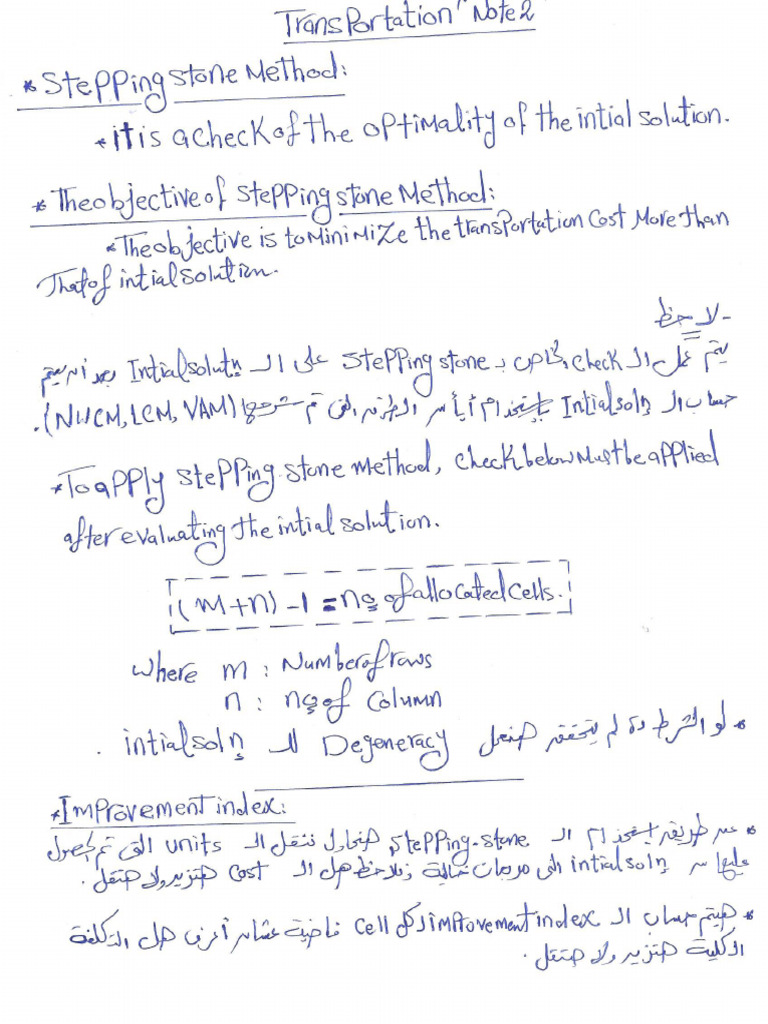 Transportation" Note 2
* Stepping stone Method:
* it is a check of the optimality of the intial solution.
* The objective of stepping stone Method:
* The objective is to Minimize the transportation Cost More than
That of intial solution.
- لاحظ
يتم عمل الـ check الخاص بـ stepping stone على الـ Intial solution بعد أن يتم
حساب الـ Intial soln بإستخدام أياً من الطرق التى تم شرحها (NWCM, LCM, VAM).
* To apply stepping stone method, check below Must be applied
after evaluating the intial solution.
(m+n) -1 = no of allocated cells.
where m : Number of rows
n : no of Column
* لو الشرط ده لم يتحقق هنعمل Degeneracy للـ intial soln .
* Improvement index:
* عن طريق إستخدام الـ stepping-stone هنحاول ننقل الـ units التى تم الحصول
عليها من intial soln الى مربعات خالية ونلاحظ هل الـ Cost هتزيد ولا هتقل.
* هيتم حساب الـ improvement index لكل Cell فاضية عشان أعرف هل التكلفة
الكلية هتزيد ولا هتقل.